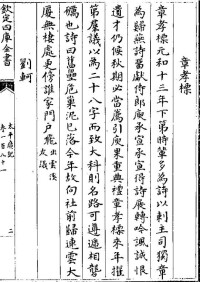 章孝標
章孝標元和十三年下第時輩多為詩以刺主司獨章
為歸燕詩留獻侍郎庾承宣承宣得詩展轉吟諷誠恨
遺才仍候秋期必當薦引庾果重典禮章孝標來年擢
第羣議以為二十八字而致大科則名路可遵遞相礱
礪也詩曰舊壘危巢泥已落今年故向社前歸連雲大
厦無棲處更傍誰家門户飛出雲溪友議
劉軻
欽定四庫全書
太平廣記
卷一百八十一
二